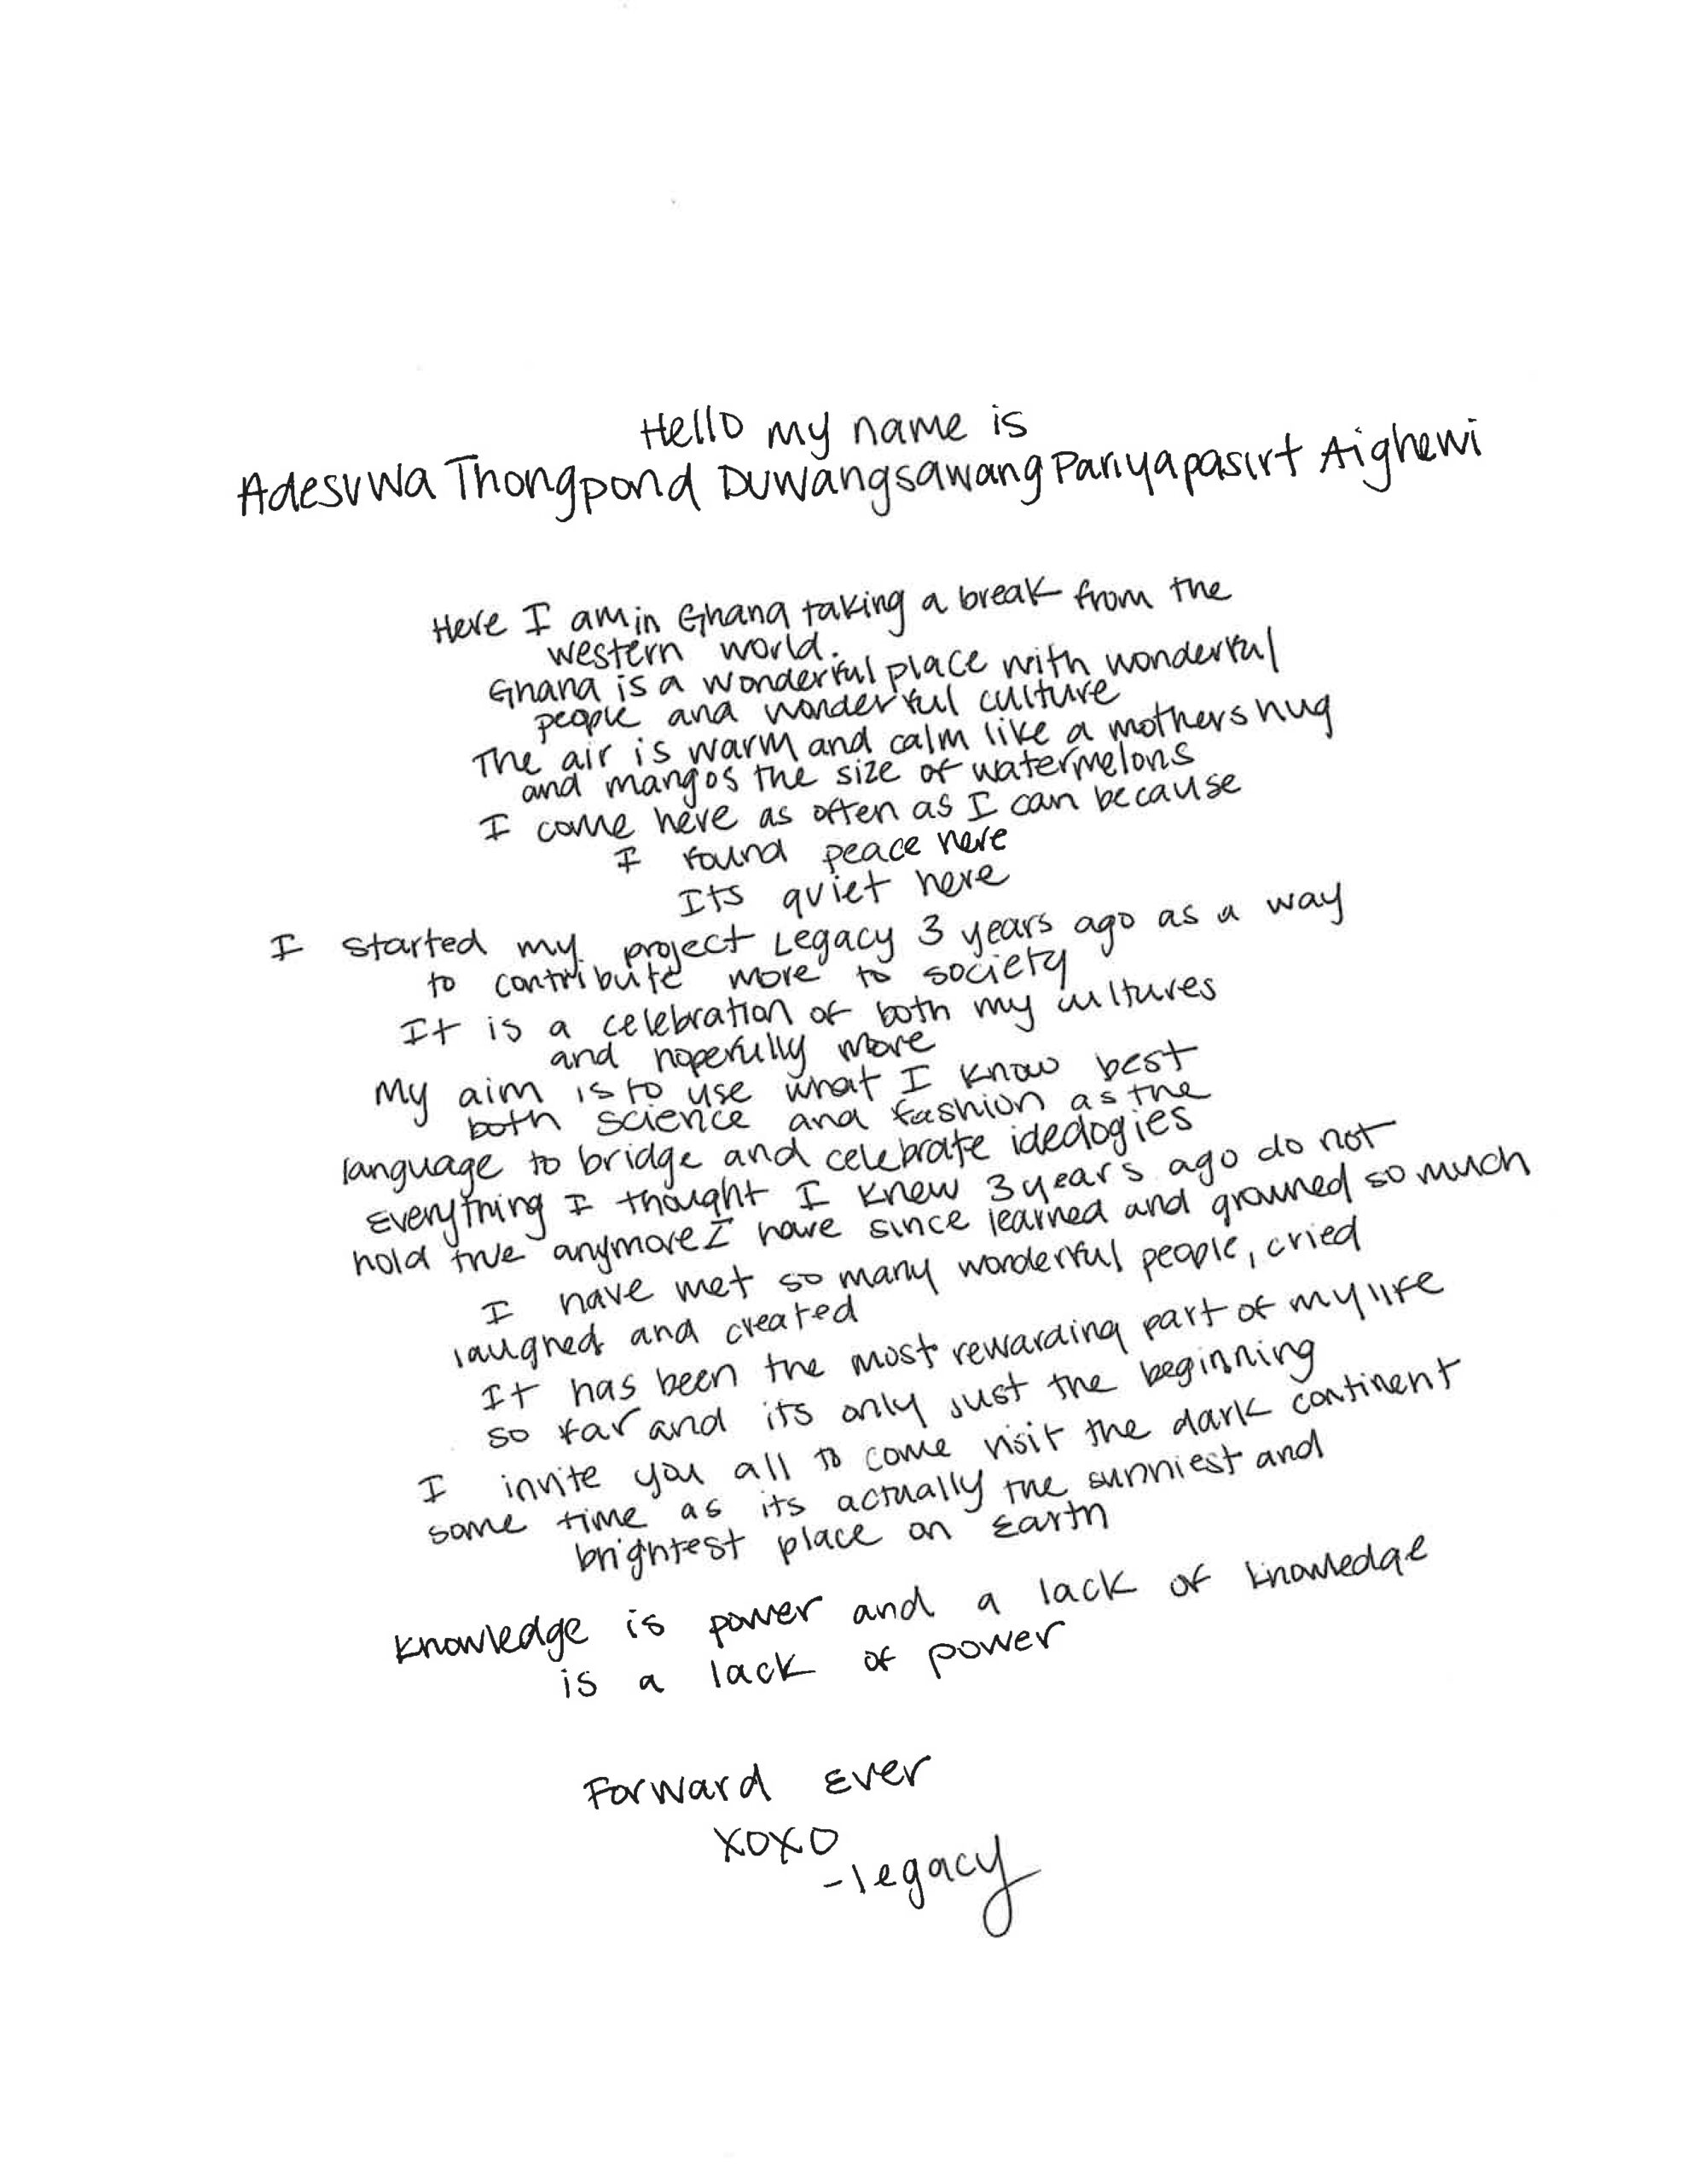 Hello my name is
Adesuwa Thongpond Duwangsawang Pariyapasirt Aighewi
Here I am in Ghana taking a break from the
western world.
Ghana is a wonderful place with wonderful
people and wonderful culture
The air is warm and calm like a mothers hug
and mangos the size of watermelons
I come here as often as I can because
I found peace here
Its quiet here
I started my project Legacy 3 years ago as a way
to contribute more to society
It is a celebration of both my cultures
and hopefully more
My aim is to use what I know best
both science and fashion as the
language to bridge and celebrate ideologies
Everything I thought I knew 3 years ago do not
hold true anymore I have since learned and growned so much
I have met so many wonderful people, cried
laughed and created
It has been the most rewarding part of my life
so far and its only just the beginning
I invite you all to come visit the dark continent
some time as its actually the sunniest and
brightest place on Earth
Knowledge is power and a lack of knowledge
is a lack of power
Forward Ever
XOXO
-legacy